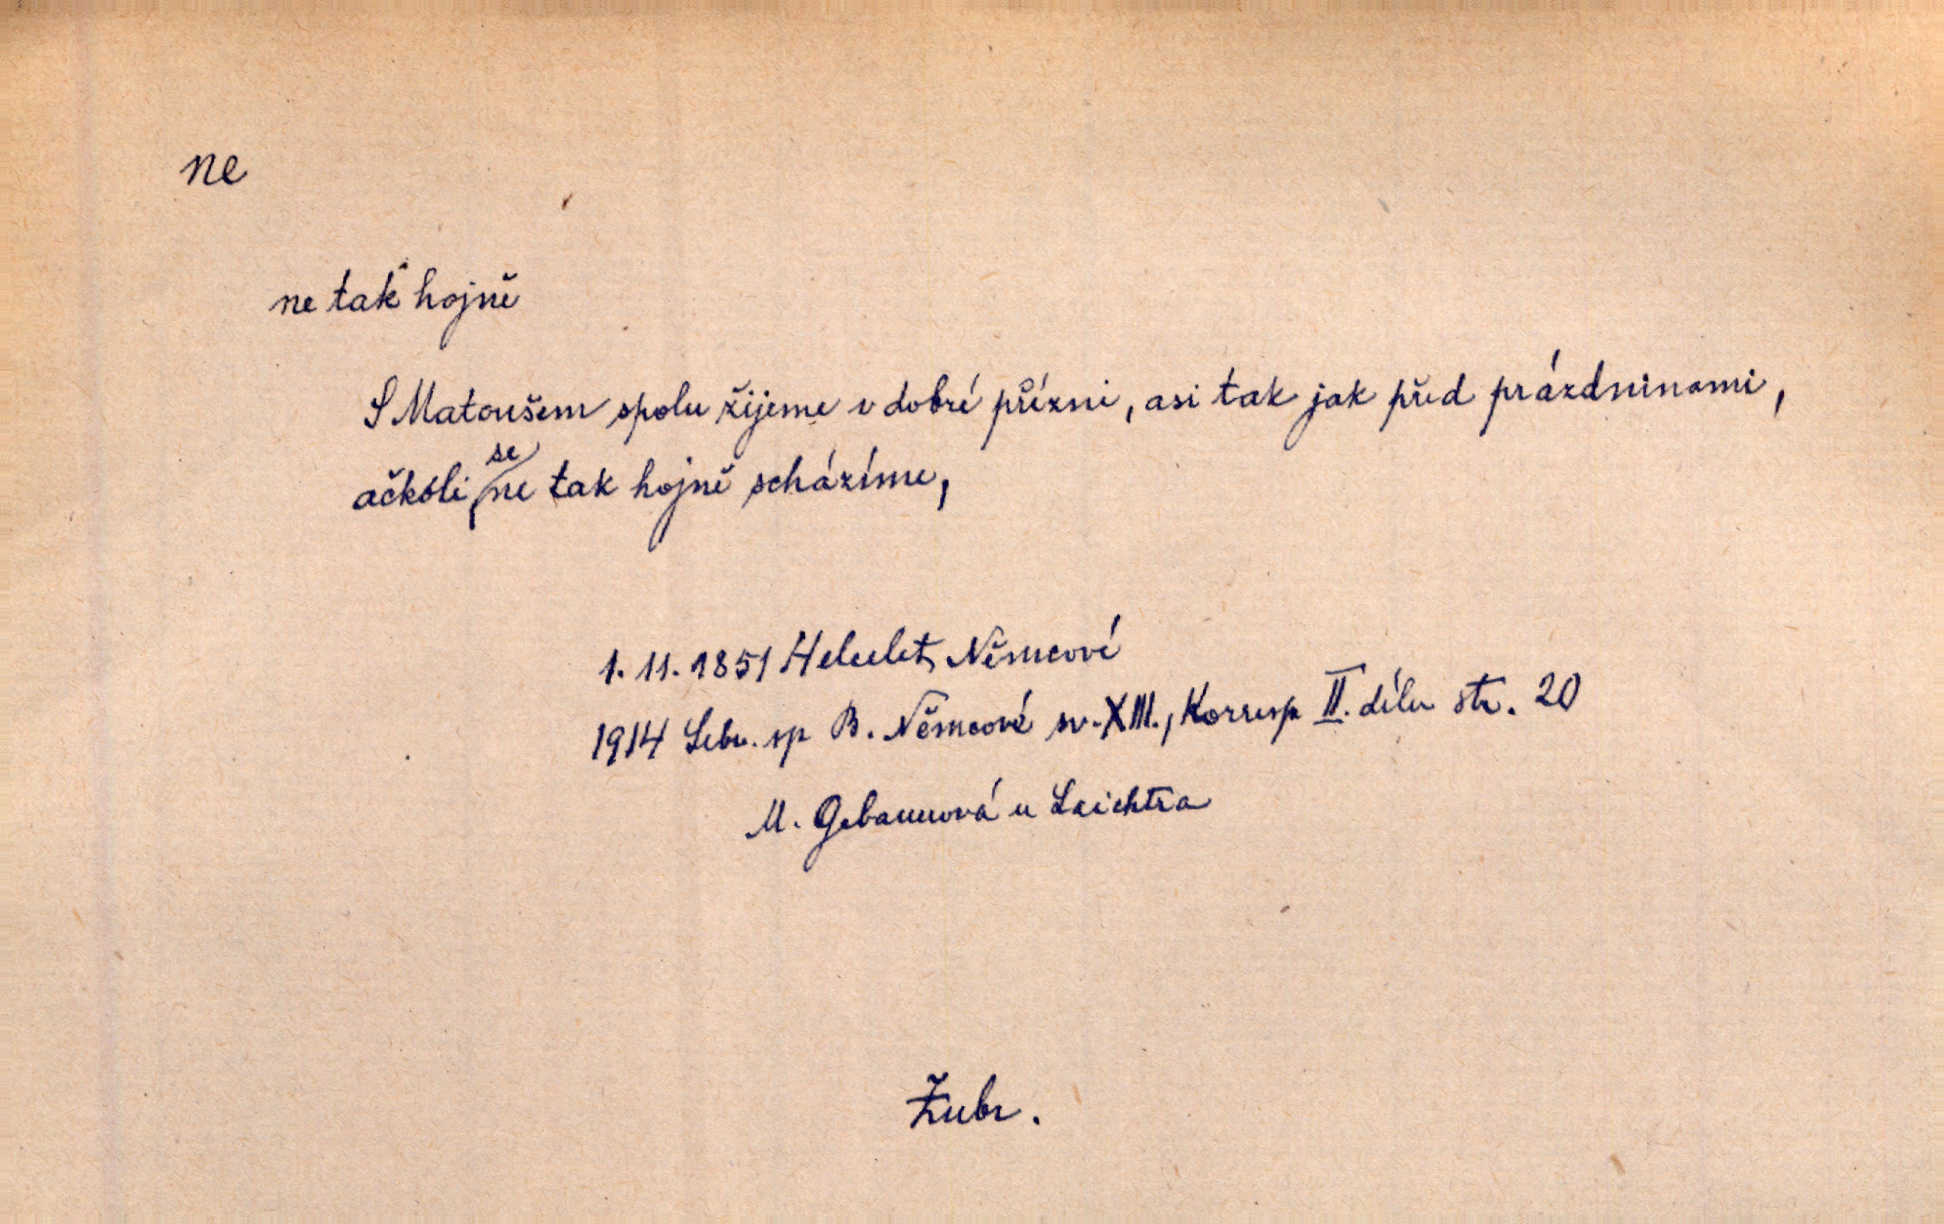 ne
ne tak hojně
S Matoušem spolu žijeme v dobré přízni, asi tak jak před prázdninami,
ačkoli se ne tak hojně scházíme,
1. 11. 1851 Helcelet Němcové
1914 Sebr. sp B. Němcové sv. XIII., Korresp II. dílu str. 20
M. Gebauerová u Laichtra
Žubr.